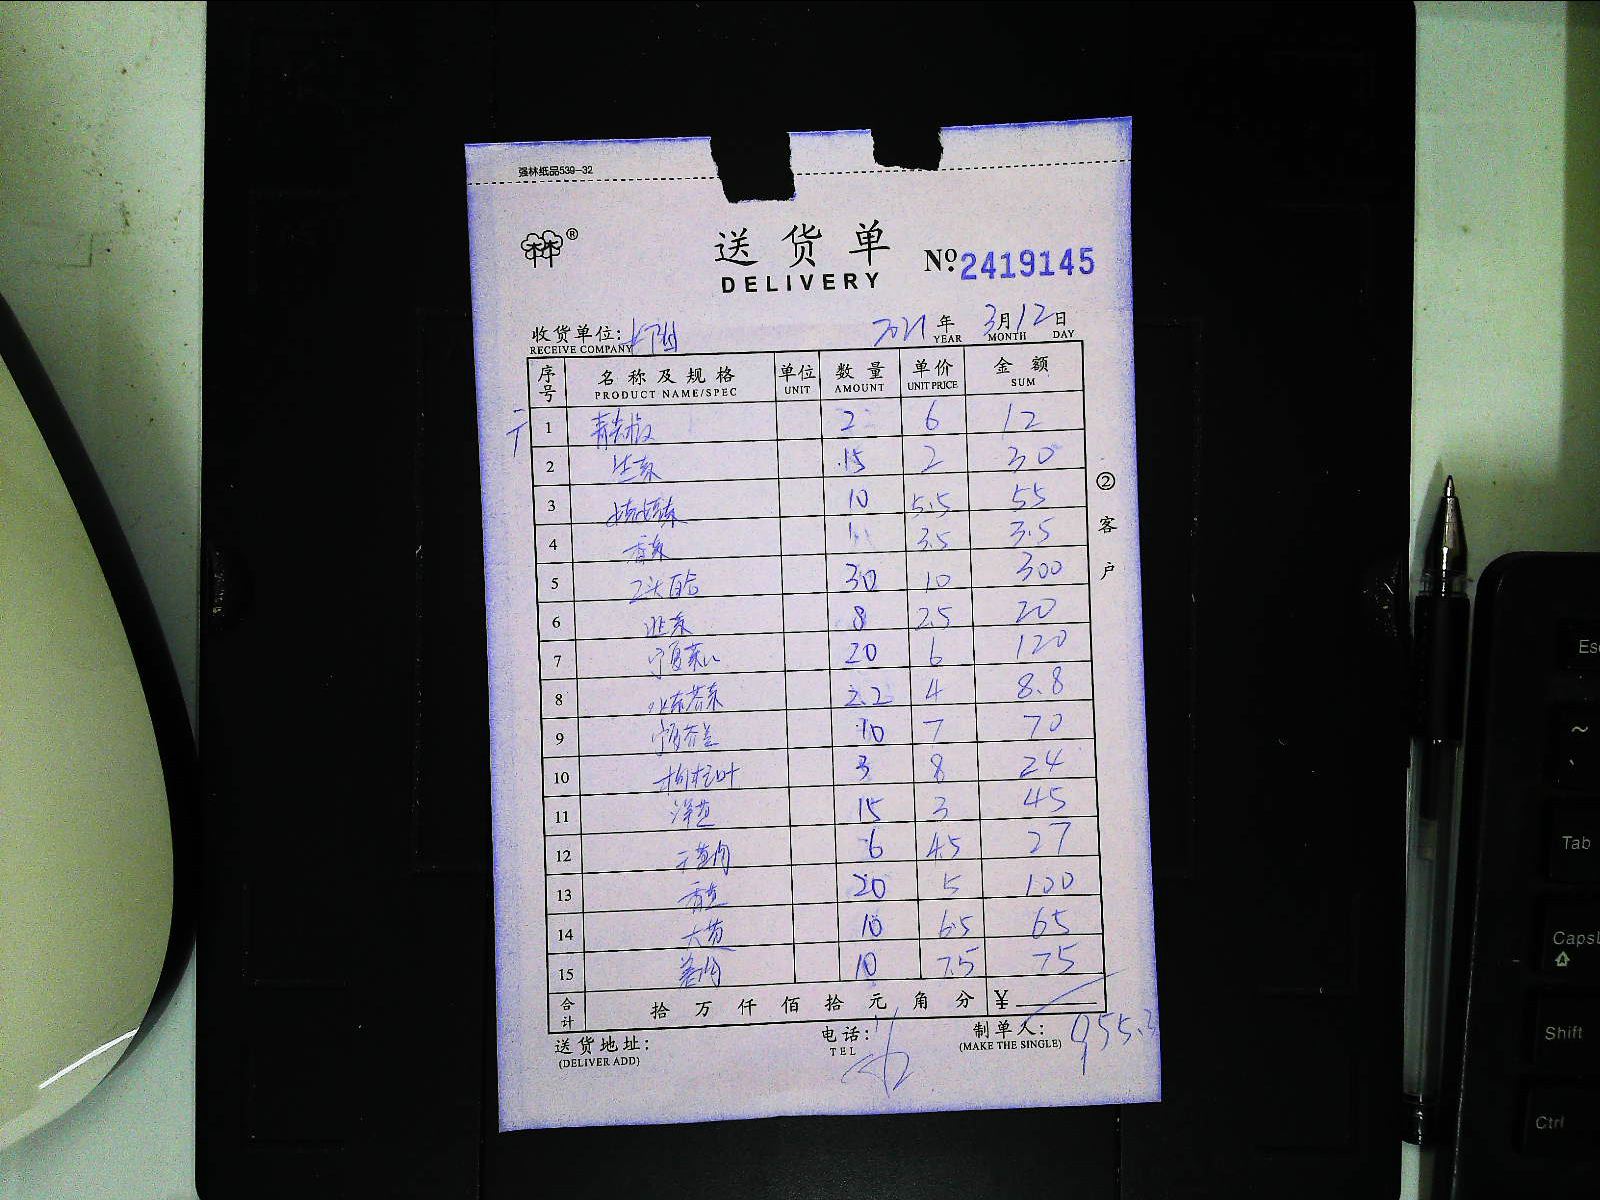 强林纸品539-32
®
送货单
DELIVERY
No. 2419145
收货单位: 2021年3月12日
RECEIVE COMPANY YEAR MONTH DAY
序号 名称及规格 单位 数量 单价 金额
PRODUCT NAME/SPEC UNIT AMOUNT UNIT PRICE SUM
1 青尖椒 2 6 12
2 生菜 15 2 30
3 娃娃菜 10 5.5 55
4 香菜 1 3.5 3.5
5 2头百合 30 10 300
6 8 2.5 20
7 宁夏菜心 20 6 120
8 2.2 4 8.8
9 宁夏芥兰 10 7 70
10 枸杞叶 3 8 24
11 洋葱 15 3 45
12 6 4.5 27
13 20 5 100
14 10 6.5 65
15 10 7.5 75
合计 拾万仟佰拾元角分 ¥
955.3
②客户
送货地址: 电话: 制单人:
(DELIVER ADD) TEL (MAKE THE SINGLE)
Esc
~
Tab
Caps
Shift
Ctrl